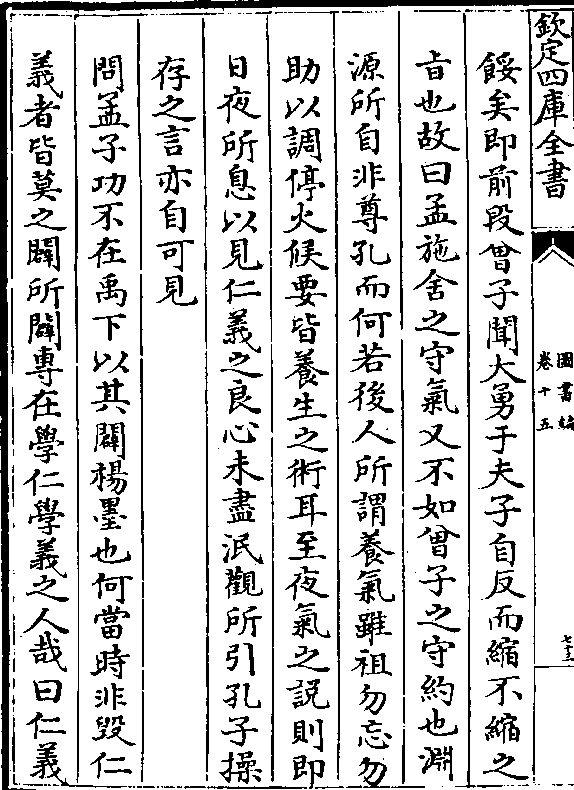 欽定四庫全書
圖書編
卷十五
七十三
餒矣即前段曾子聞大勇于夫子自反而縮不縮之
㫖也故曰孟施舍之守氣又不如曾子之守約也淵
源所自非尊孔而何若後人所謂養氣雖祖勿忘勿
助以調停火候要皆養生之術耳至夜氣之説則即
日夜所息以見仁義之良心未盡泯觀所引孔子操
存之言亦自可見
問孟子功不在禹下以其闢楊墨也何當時非毁仁
義者皆莫之闢所闢專在學仁學義之人哉曰仁義